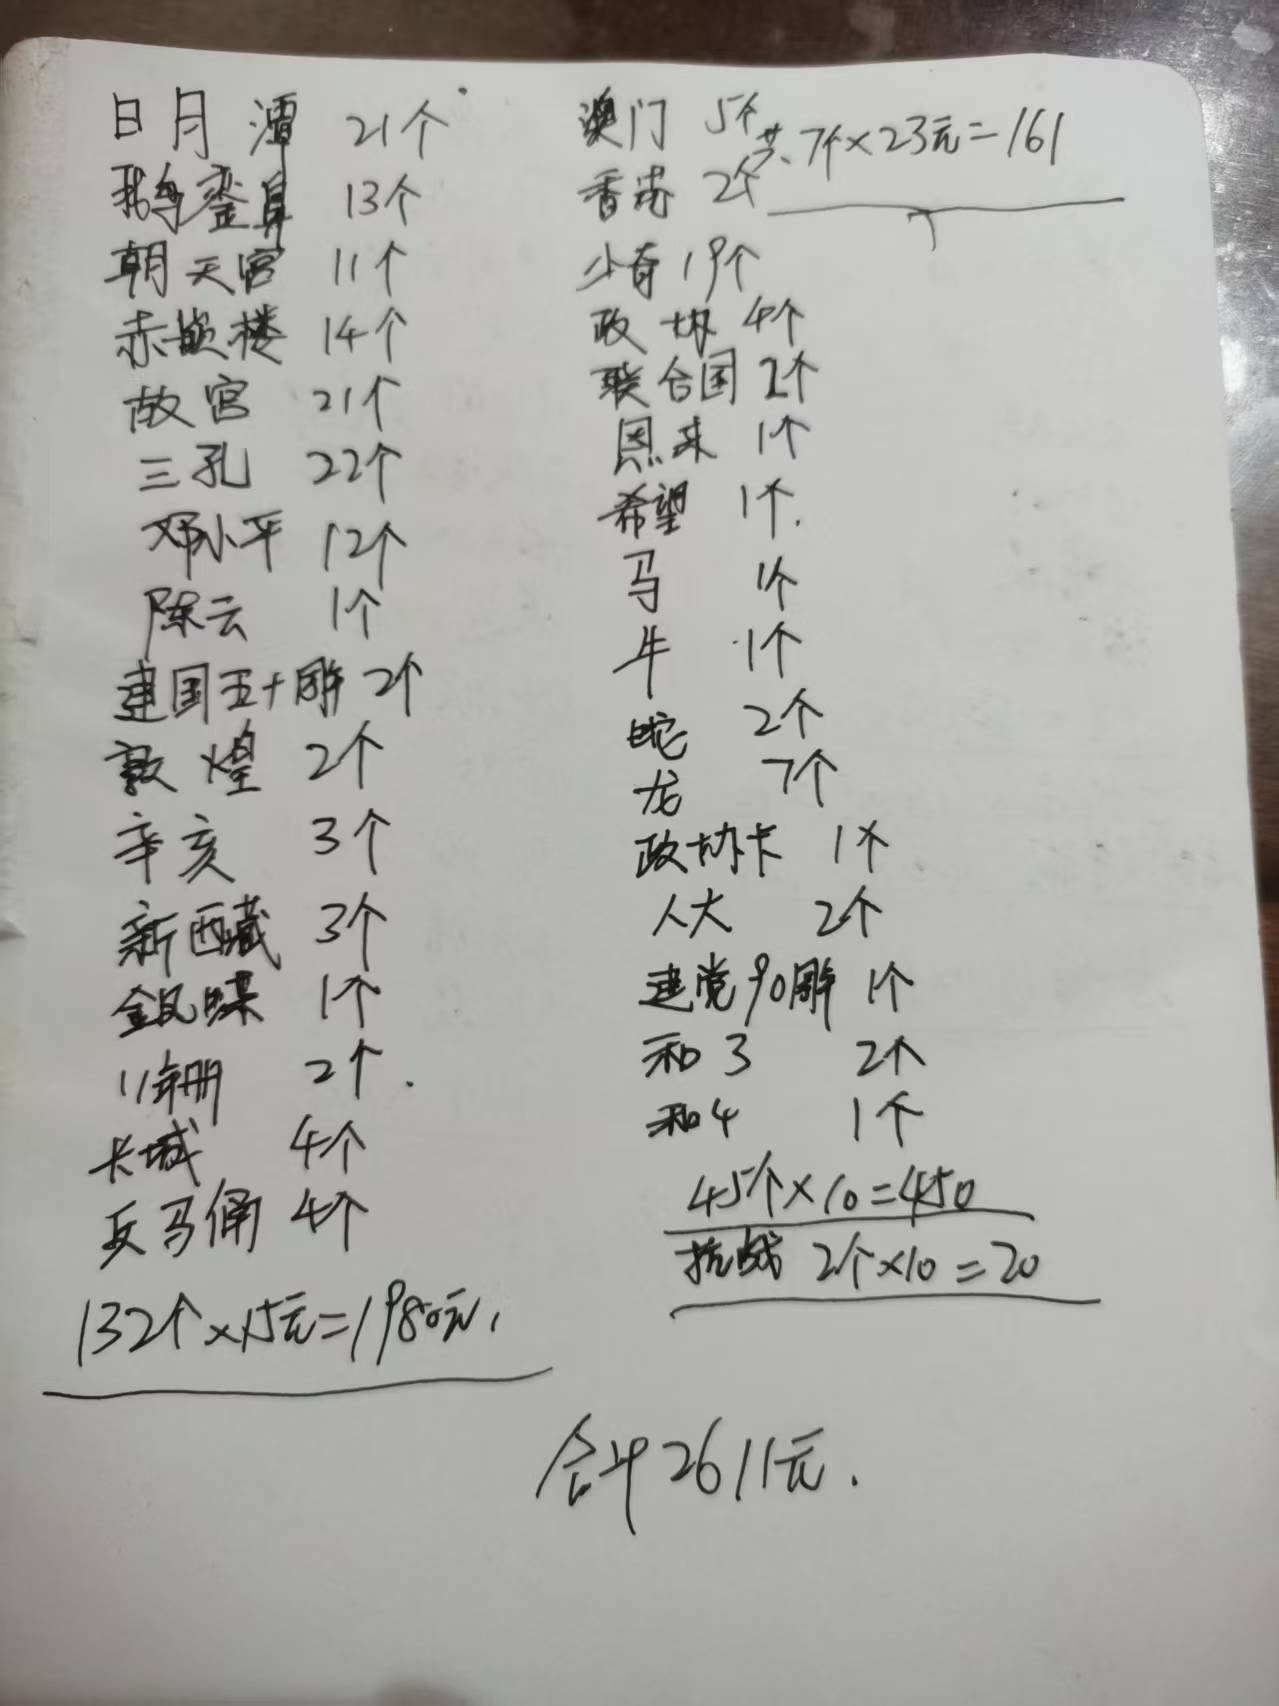 日月潭 21个
鹅銮鼻 13个
朝天宫 11个
赤嵌楼 14个
故宫 21个
三孔 22个
邓小平 12个
陈云 1个
建国五十周年 2个
敦煌 2个
辛亥 3个
新西藏 3个
金凤蝶 1个
11年册 2个.
长城 4个
兵马俑 4个
132个×15元=1980元.
澳门 5个
香港 2个
共7个×23元=161
少奇 19个
政协 4个
联合国 2个
恩来 1个
希望 1个.
马 1个
牛 1个
蛇 2个
龙 7个
政协卡 1个
人大 2个
建党90周年 1个
和3 2个
和4 1个
45个×10=450
抗战 2个×10=20
合计2611元.